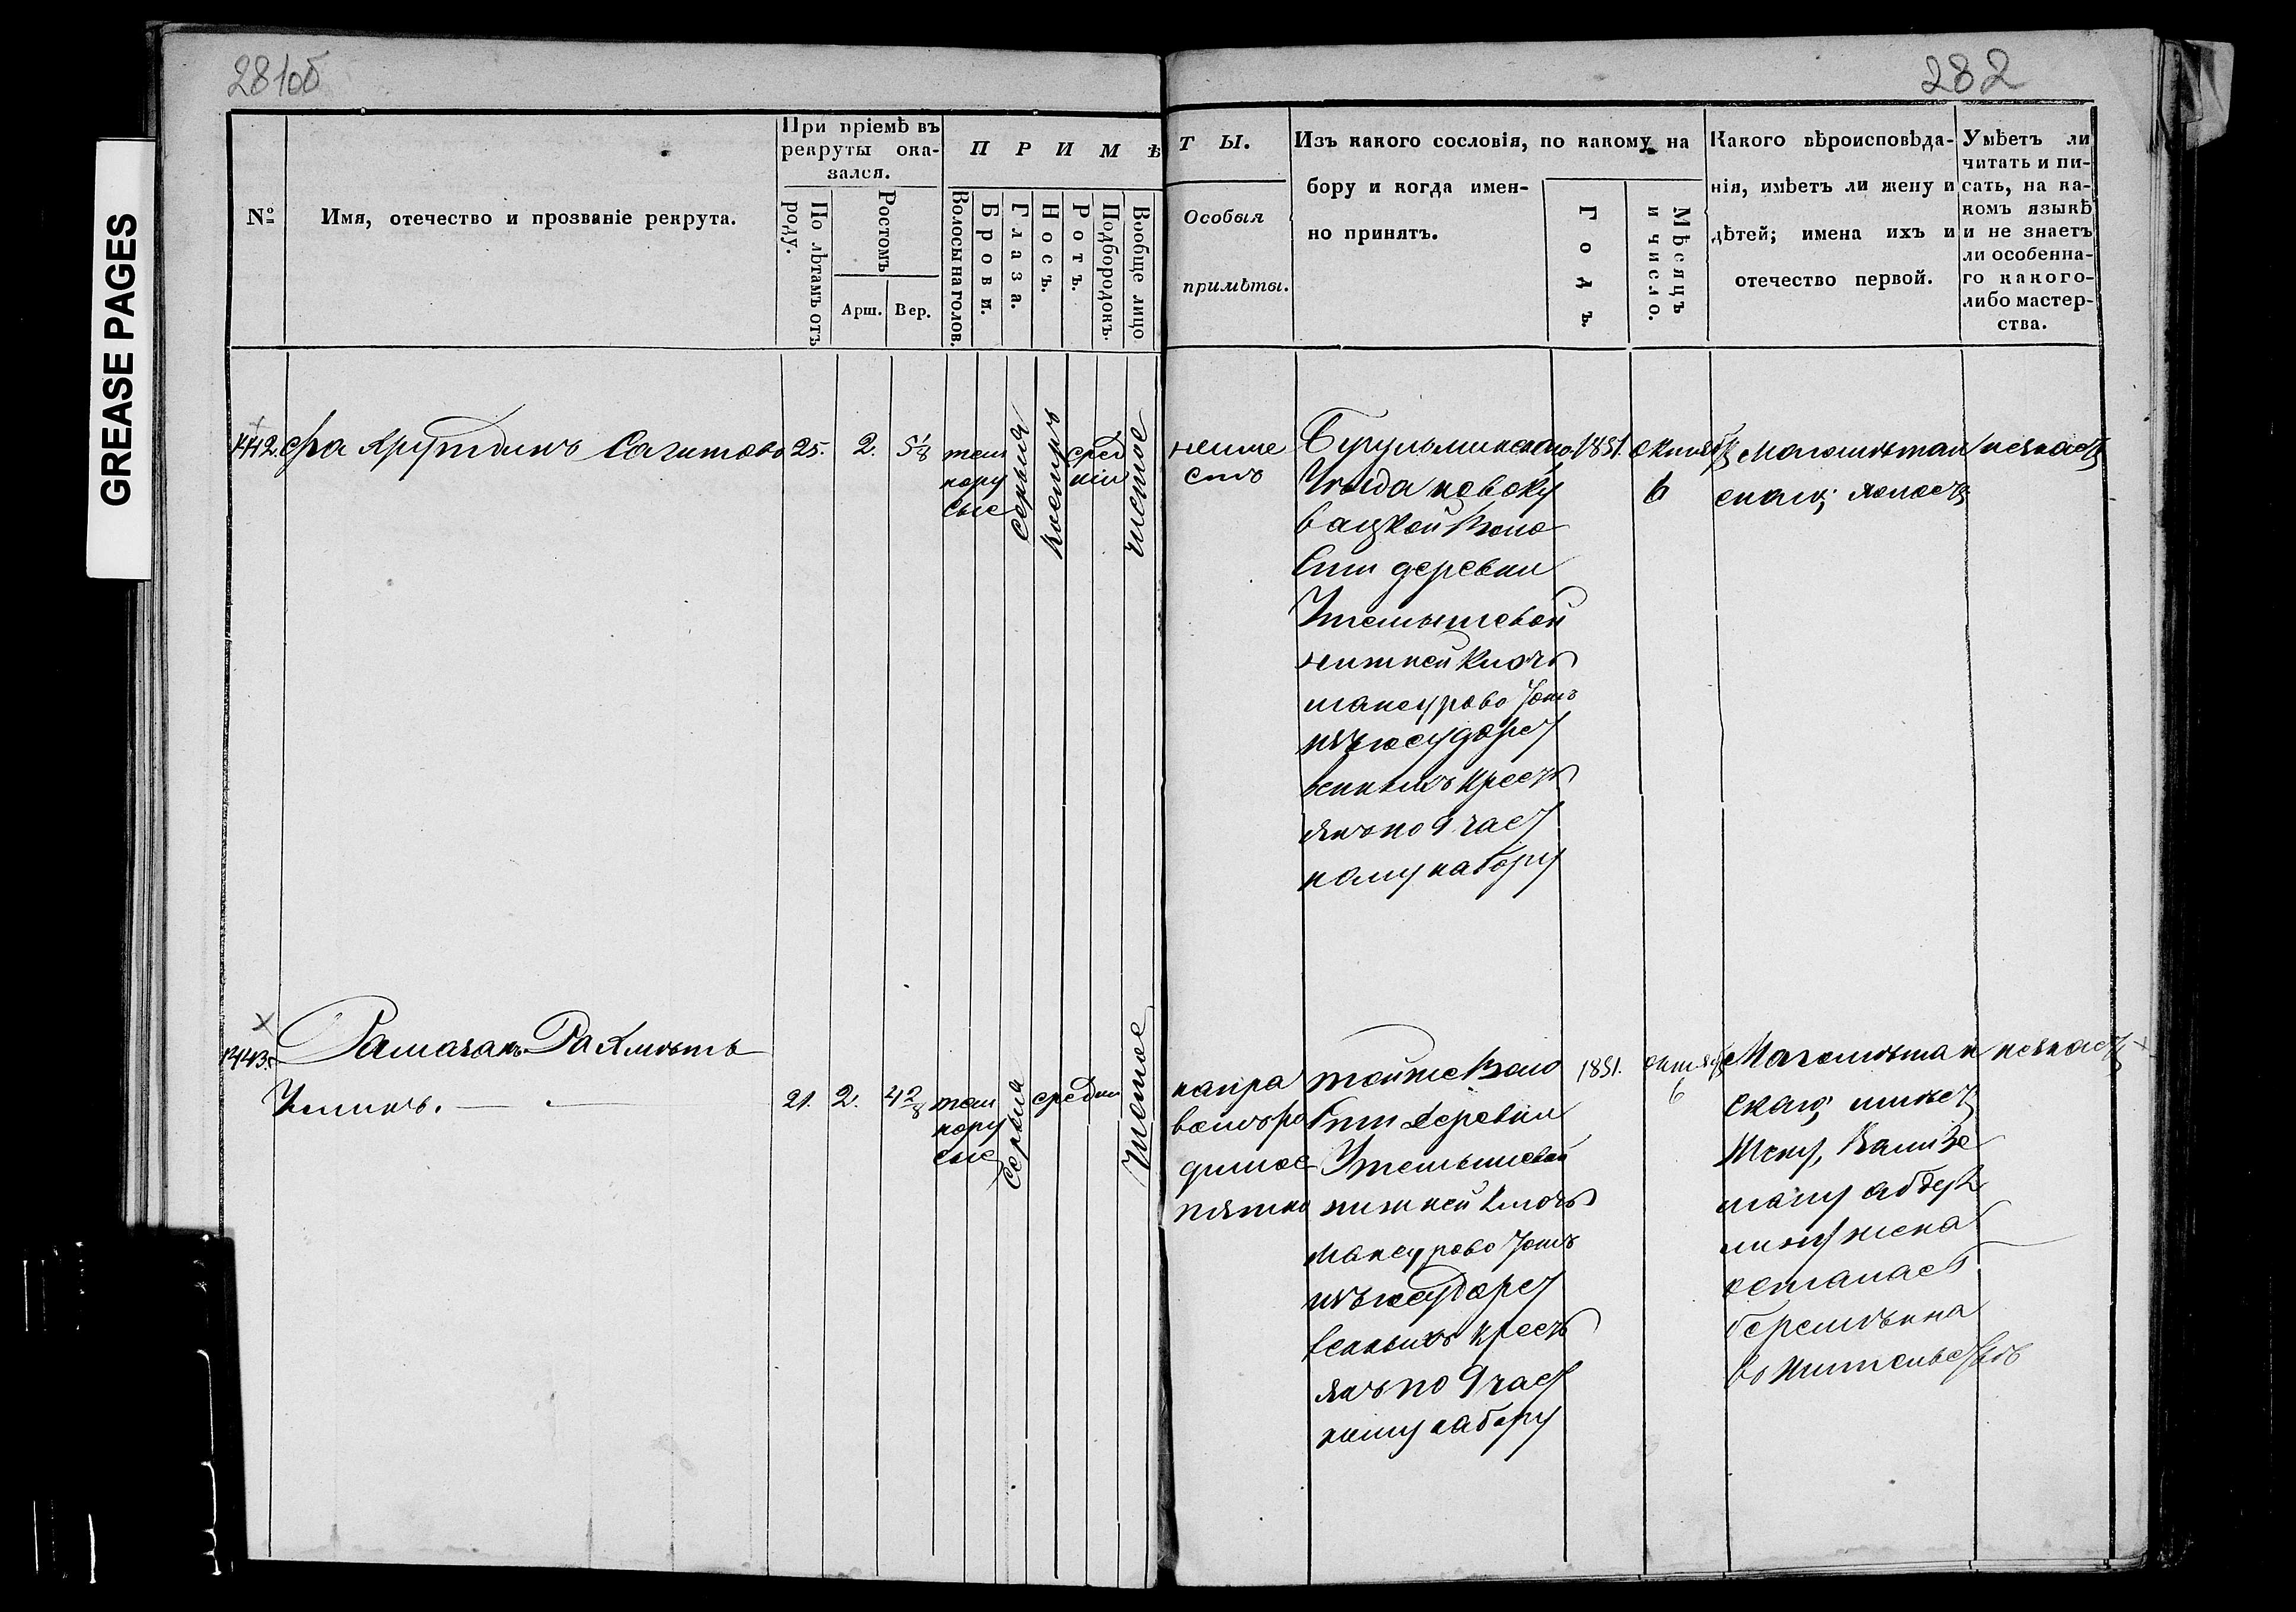 GREASE PAGES
281об
282
№
Имя, отечество и прозваніе рекрута.
При пріемѣ въ
рекруты ока-
зался.
По лѣтамъ отъ
роду.
Ростомъ
Арш. Вер.
ПРИМѢ
Волосы на голов.
Брови.
Глаза.
Носъ.
Ротъ.
Подбородокъ.
Вообще лицо
ТЫ.
Особыя
примѣты.
Изъ какого сословія, по какому на
бору и когда имен-
но принятъ.
Годъ.
Мѣсяцъ
и число.
Какого вѣроисповѣда-
нія, имѣетъ ли жену и
дѣтей; имена ихъ и
отечество первой.
Умѣетъ ли
читать и пи-
сать, на ка-
комъ языкѣ
и не знаетъ
ли особенна-
го какого-
либо мастер-
ства.
1442. Фахрутдинъ Сагитовъ
25.
2.
5 1/8
тем
нору
сые
серыя
сред
ніи
чистое
неиме
етъ
Бугульминскаго
Уѣзда
Воло
сти деревни
Утемышевой
нижней Ключъ
мансурово тожъ
изъ государст
венныхъ крестъ
янъ по 9 част
ному набору
1851.
октяб
6
Магометан
скаго; холостъ
незнаетъ
1443.
Рамазанъ Рахметъ
Уллинъ.
21.
2.
4 2/8
тем
нору
сые
серыя
средни
чистое
направа
родимое
пятно
тойже Воло
сти деревни
Утемышевой
нижней Ключъ
Мансурово тожъ
изъ государст
венныхъ крестъ
янъ по 9 част
ному набору
1851.
октяб
6
Магометан
скаго; имѣетъ
жену,
жена
осталась
беременна
незнаетъ